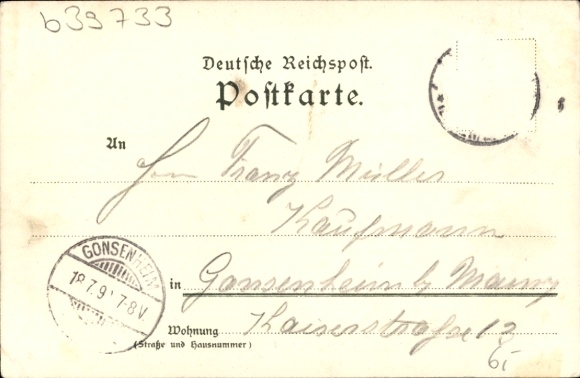 b39733
Deutsche Reichspost.
Postkarte.
An
Herrn Franz Müller
Kaufmann
GONSENHEIM
18.7.9 7-8V
in Gonsenheim b/ Mainz
Wohnung Kaiserstraße 12
(Straße und Hausnummer)